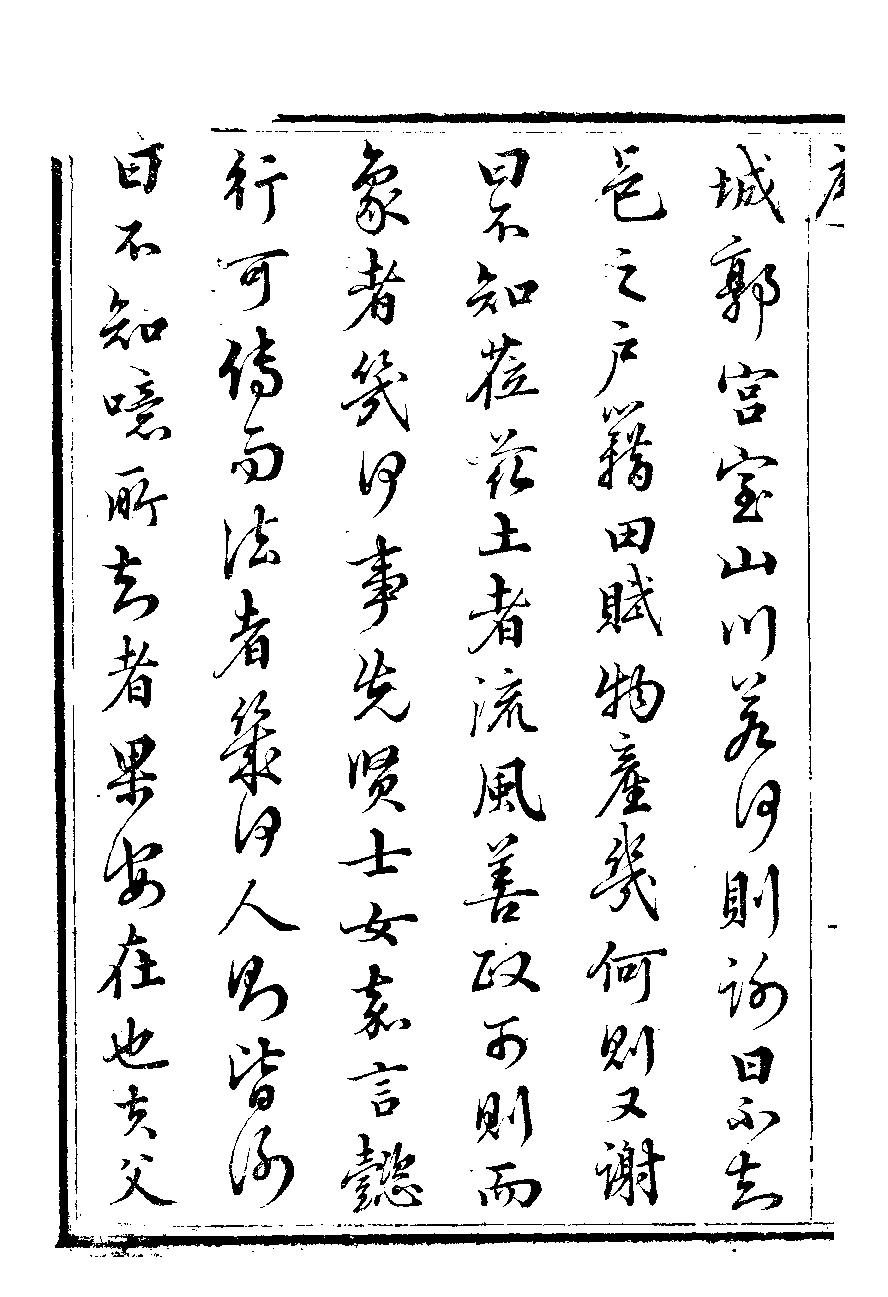 城郭宮室山川若何則謝曰不知
邑之戶籍田賦物產幾何則又謝
曰不知莅茲土者流風善政可則而
象者幾何事先賢士女嘉言懿
行可傳而法者幾何人則皆謝
曰不知噫所知者果安在也夫父